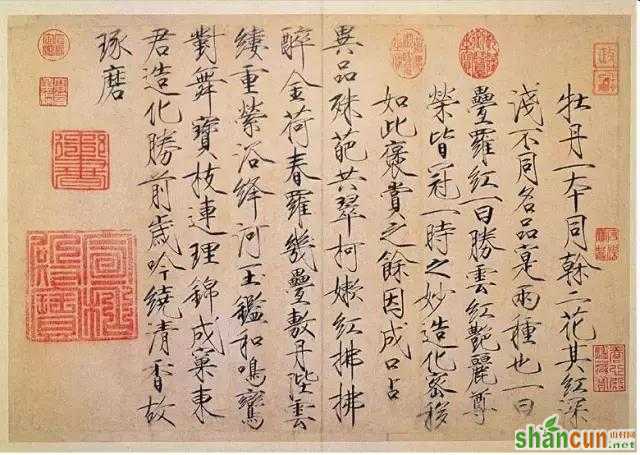 牡丹一本同榦二花其紅深
淺不同名品寔兩種也一曰
疊羅紅一曰勝雲紅艷麗尊
榮皆冠一時之妙造化密移
如此褒賞之餘因成口占
異品殊葩共翠柯嫩紅拂拂
醉金荷春羅幾疊敷丹陛雲
縷重縈浴絳河玉鑑和鳴鸞
對舞寶枝連理錦成窠東
君造化勝前歲吟繞清香故
琢磨
shancun
山村网
.net